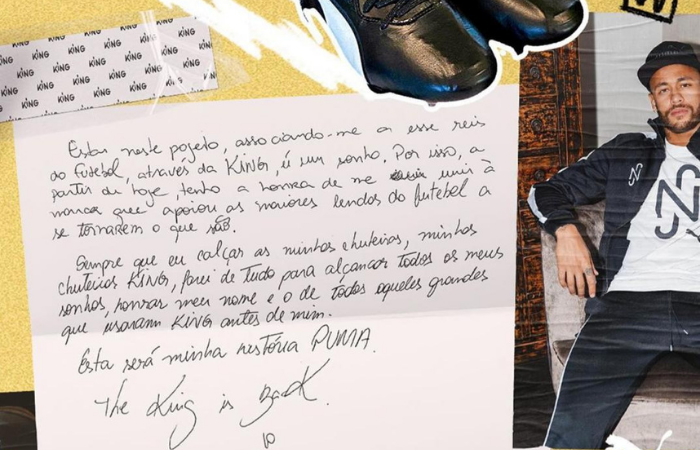 KING KING KING KING KING
KING KING KING KING KING KING
KING KING KING KING KING KING
KING KING KING KING KING
Estar neste pojeto, associando-me a esse reis
do futebol, através da KING, é um sonho. Por isso, a
partir de hoje, tenho a honra de me unir à
marca que apoiou as maiores lendas do futebol a
se tornarem o que são.
Sempre que eu calçar as minhas chuteiras, minhas
chuteiras KING, farei de tudo para alcançar todos os meus
sonhos, honrar meu nome e o de todos aqueles grandes
que usaram KING antes de mim.
Esta será minha história PUMA.
The King is Back
10